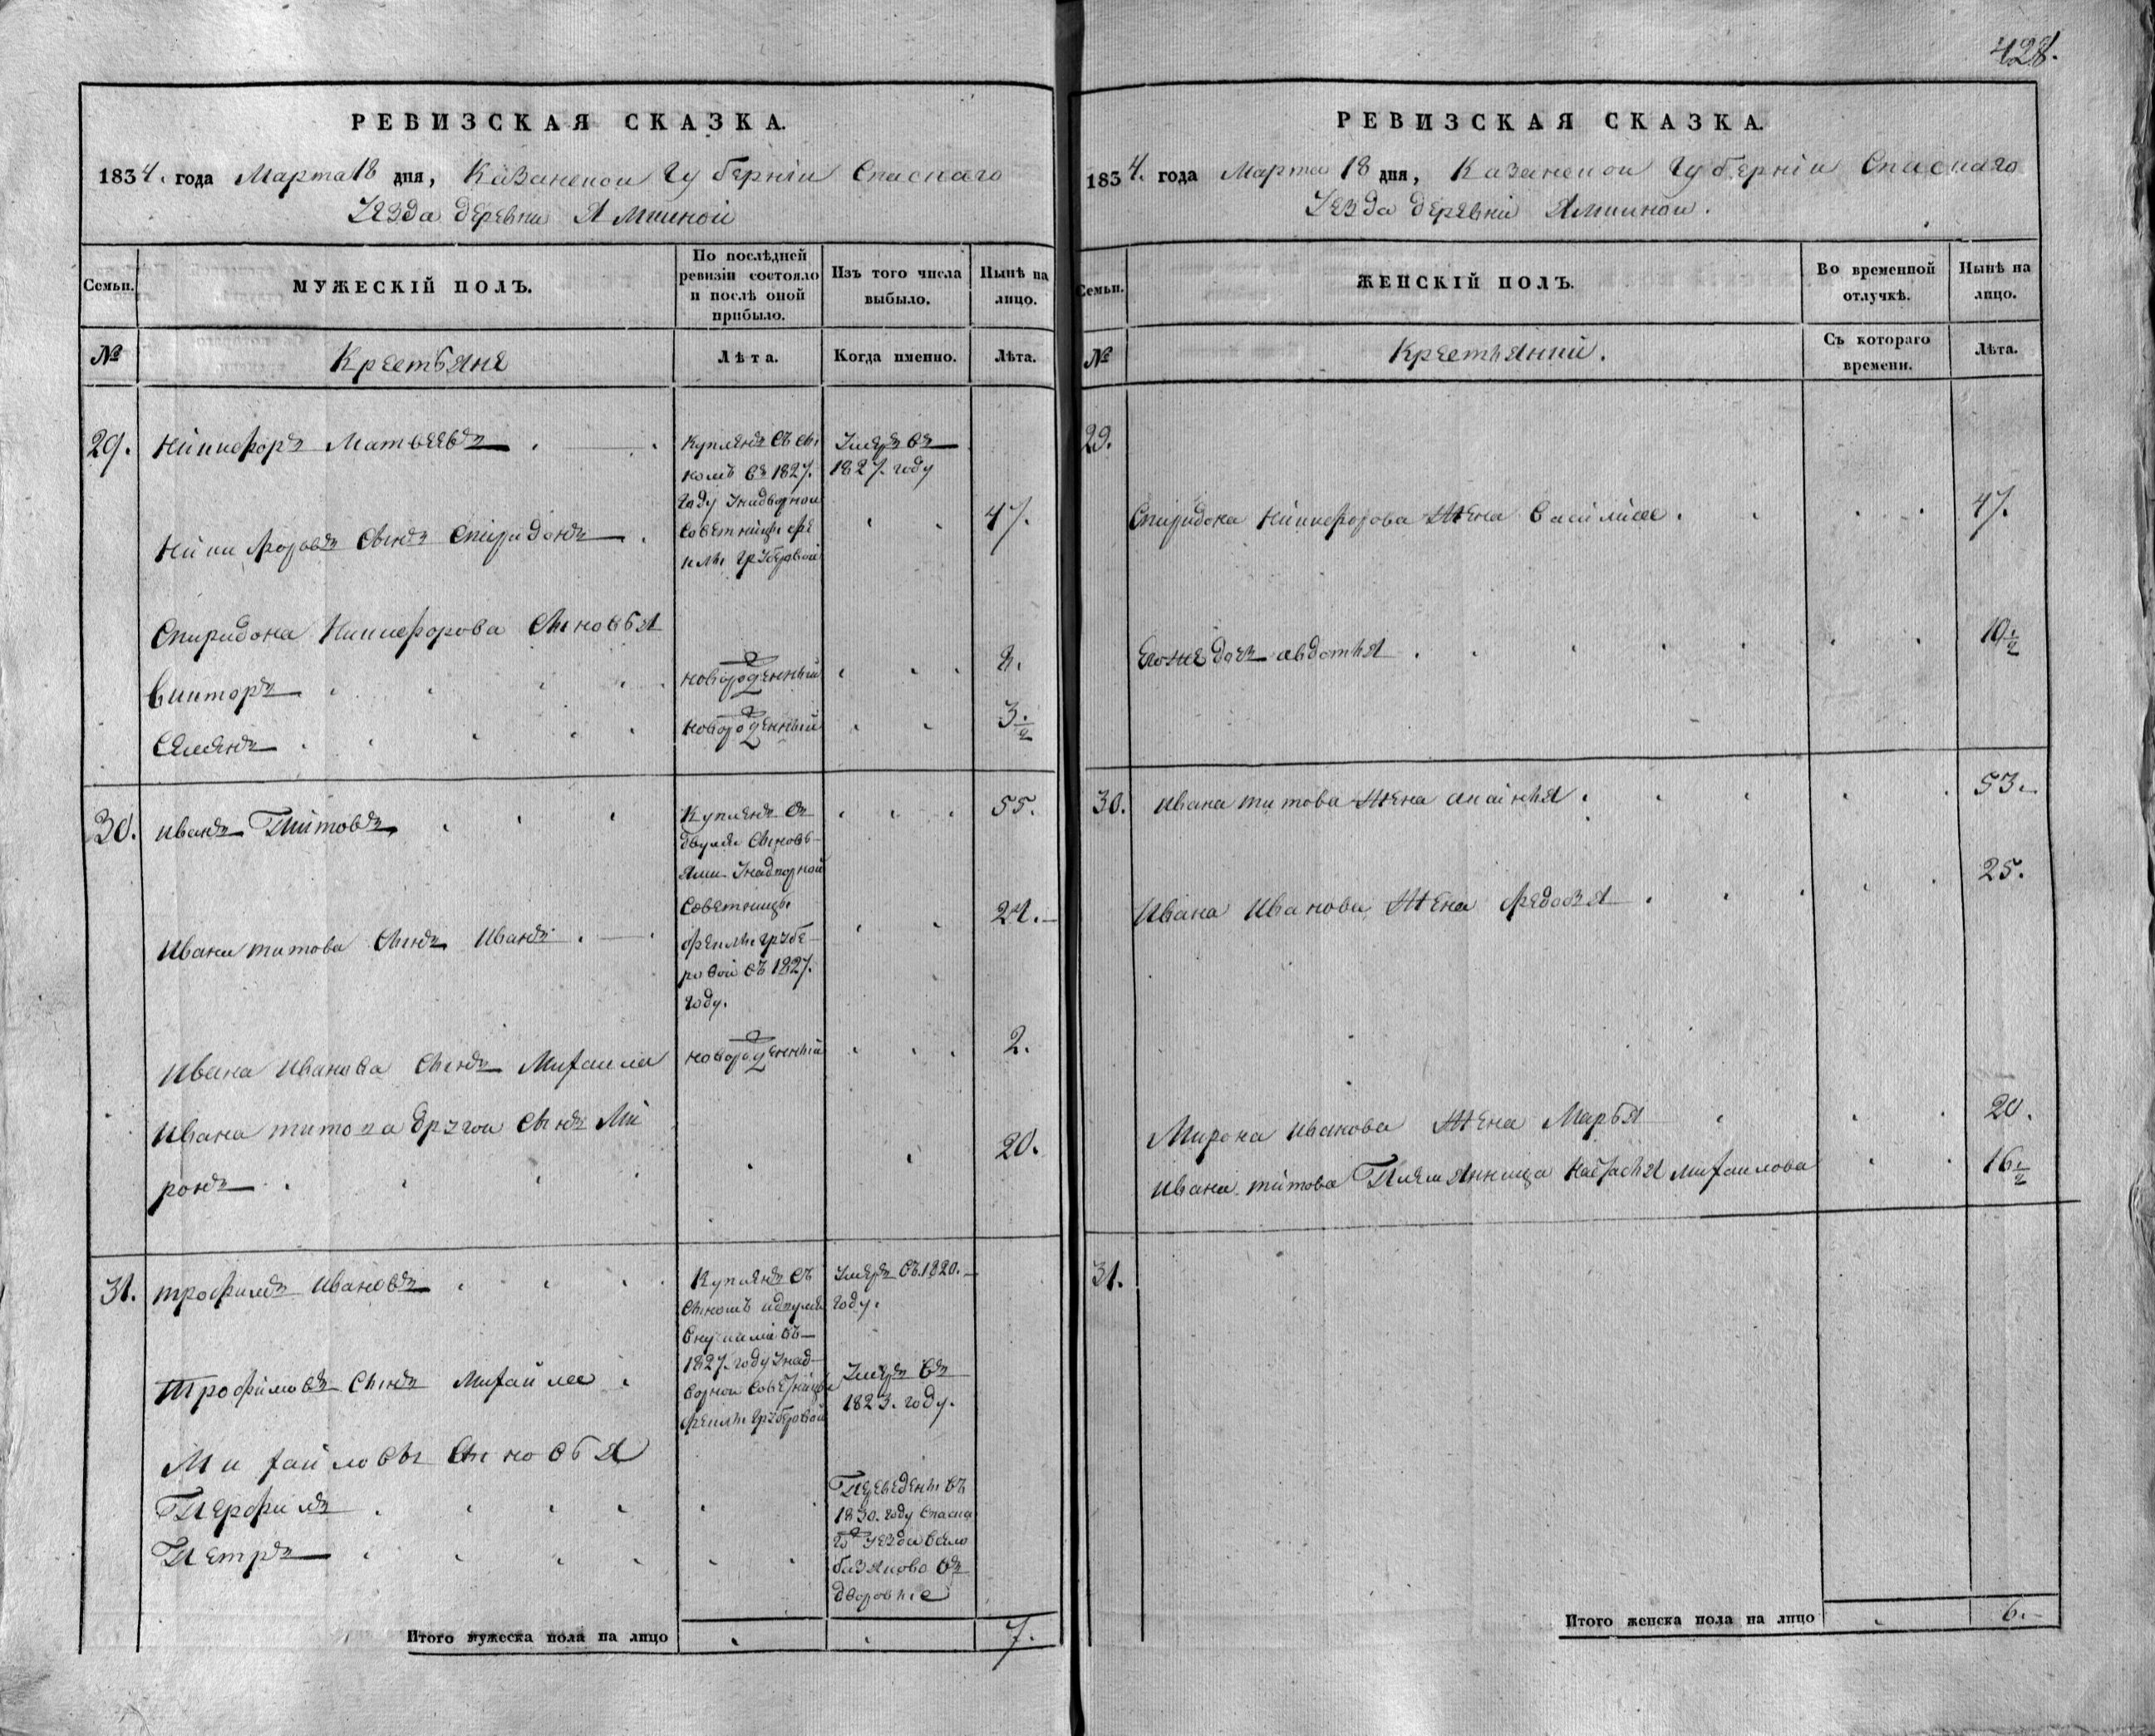 428.
РЕВИЗСКАЯ СКАЗКА.
1834. года Марта 18 дня, Казанской Губерніи Спаскаго
Уезда деревни Ямкиной
Семьи.
МУЖЕСКІЙ ПОЛЪ.
По послѣдней ревизіи состояло и послѣ оной прибыло.
Изъ того числа выбыло.
Нынѣ на лицо.
№
Крестьяне
Лѣта.
Когда именно.
Лѣта.
29. Никифоръ Матвеевъ
Купленъ съ сы
номъ въ 1827.
году Унадворной
Советницы Фе
клы Грубервой
Умеръ въ
1827. году
Никифоровъ Сынъ Спиридонъ
47.
Спиридона Никифорова Сыновья
Викторъ
новорожденный
8.
Семенъ
новорожденный
3 1/2
30. Иванъ Титовъ
Купленъ съ
двумя Сыновь
ями Унадворной
Советницы
Феклы Грубе
ровой въ 1827.
году.
55.
Ивана титова Сынъ Иванъ
24.
Ивана Иванова Сынъ Михаила
новорожденный
2.
Ивана титова другой Сынъ Ми
ронъ
20.
31. трофимъ Ивановъ
Купленъ съ
Сыномъ идвумя
Внуками въ
1827. году Унад
ворной Советницы
Феклы Груберовой
Умеръ въ 1820.
году.
Трофимовъ Сынъ Михайла
Умеръ въ
1823. году.
Михайловы Сыновья
Перфилъ
Петръ
Переведены въ
1830. году Спаска
го Уезда Село
базяково въ
дворовые
Итого мужеска пола на лицо
7.
РЕВИЗСКАЯ СКАЗКА.
1834. года Марта 18 дня, Казанской Губерніи Спаскаго
Уезда деревни Ямкиной.
Семьи.
ЖЕНСКІЙ ПОЛЪ.
Во временной отлучкѣ.
Нынѣ на лицо.
№
Крестьянки.
Съ котораго времени.
Лѣта.
29.
Спиридона Никифорова Жена Василиса
47.
Егоже дочь авдотья
10 1/2
30. Ивана титова Жена
53.
Ивана Иванова Жена Федосья
25.
Мирона Иванова Жена Марья
20.
Ивана титова Племянница Настасья Михаилова
16 1/2
31.
Итого женска пола на лицо
6.